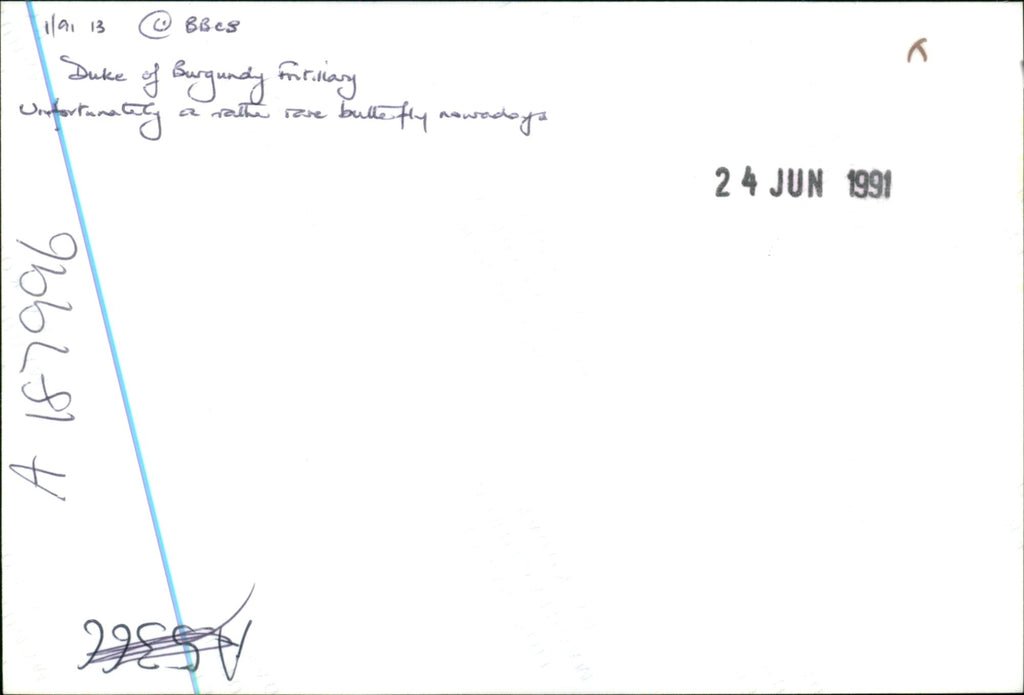 1/91 13 © BBCS
Duke of Burgundy Fritillary
Unfortunately a rather rare butterfly nowadays
24 JUN 1991
A 187996